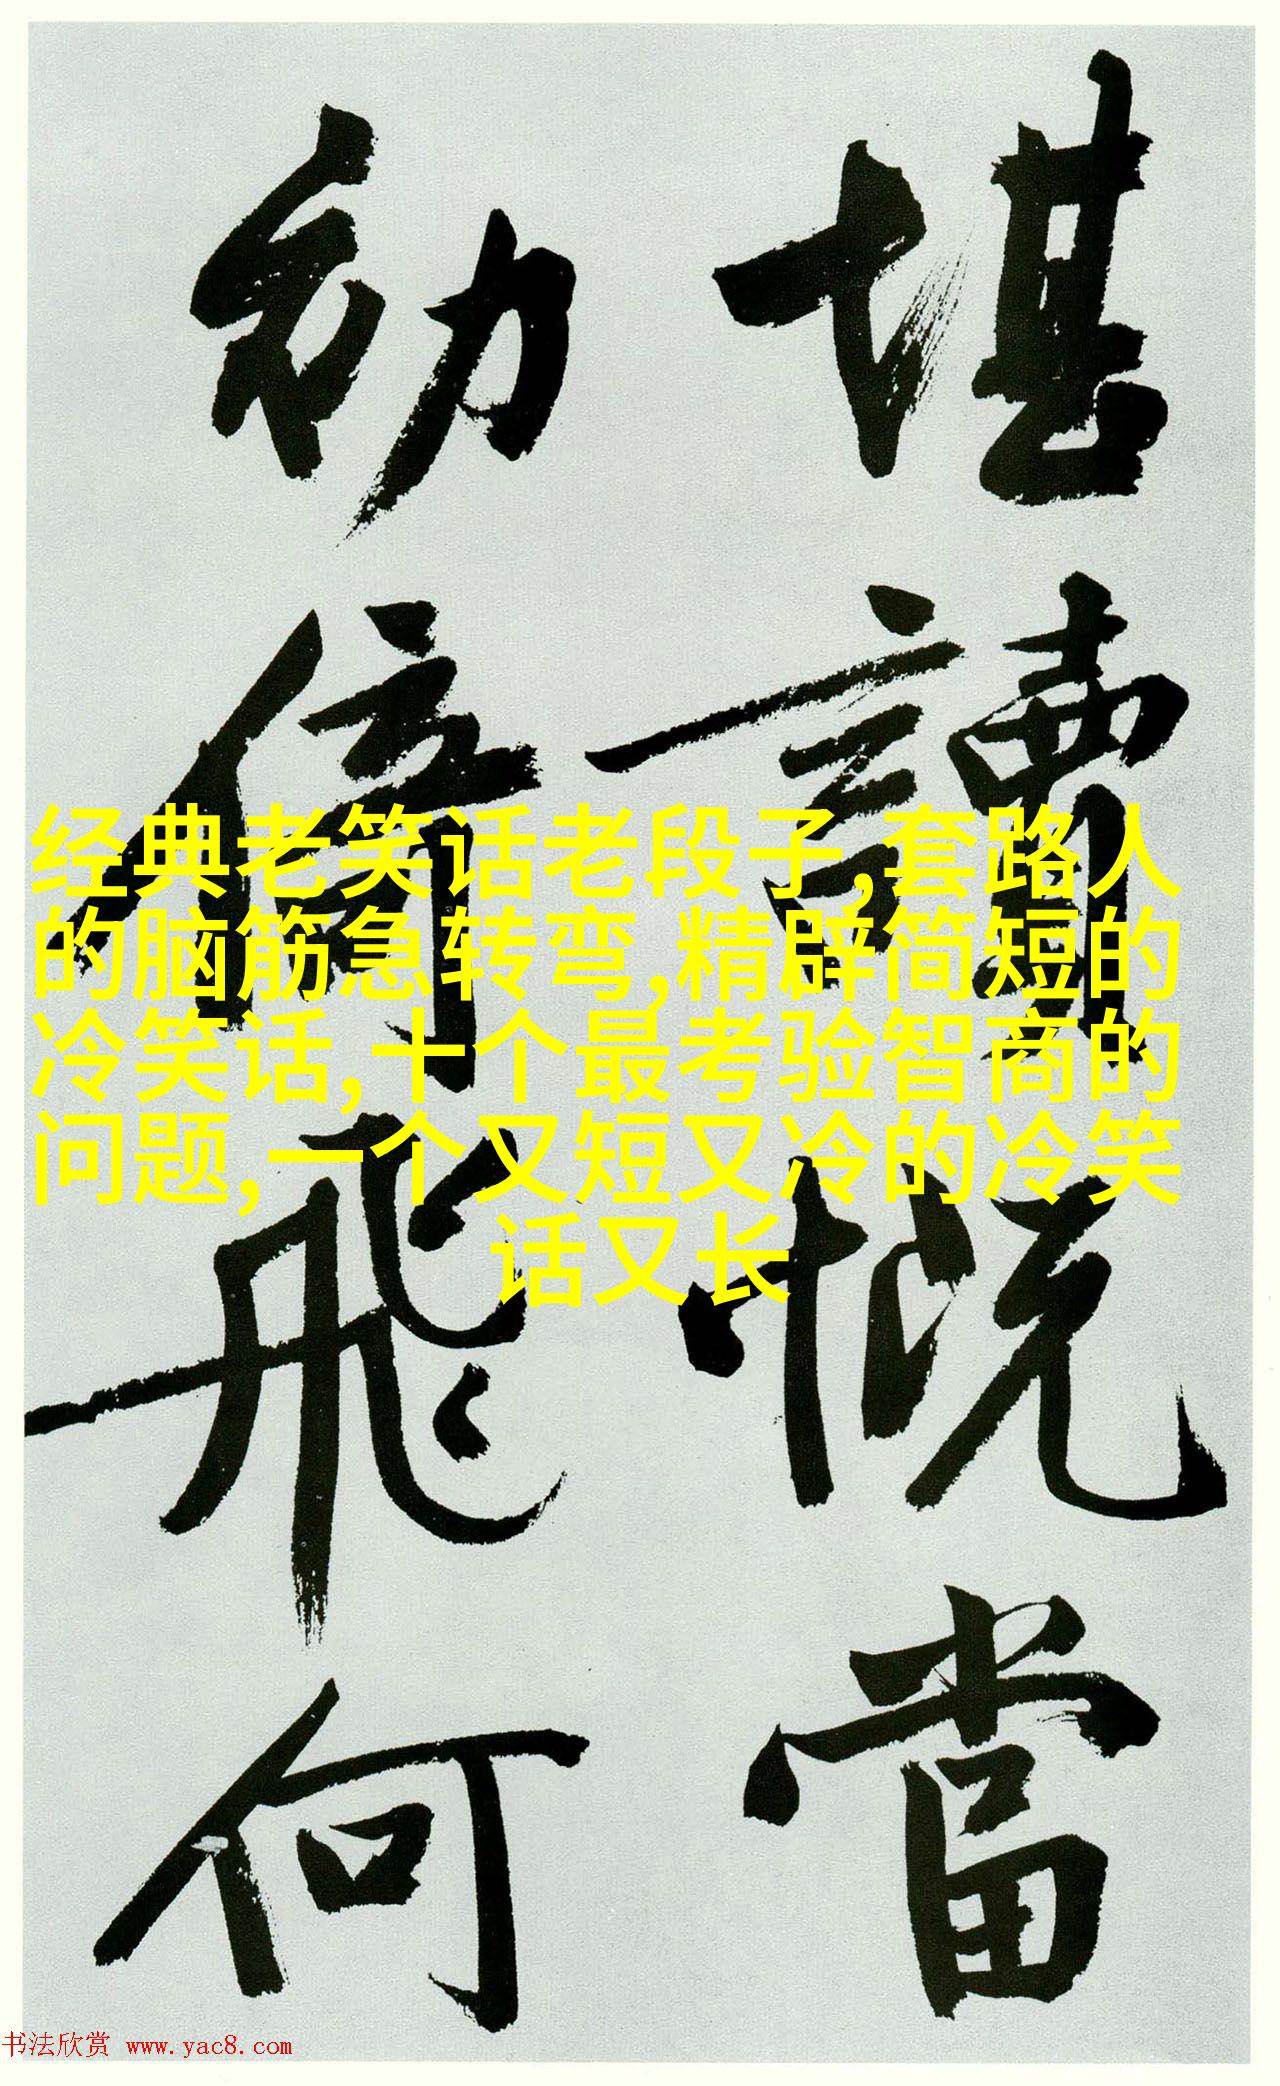 堪讀慨當
倚飛何
经典老笑话老段子,套路人
的脑筋急转弯,精辟简短的
冷笑话,十个最考验智商的
问题,一个又短又冷的冷笑
话又长
书法欣赏 www.yac8.com